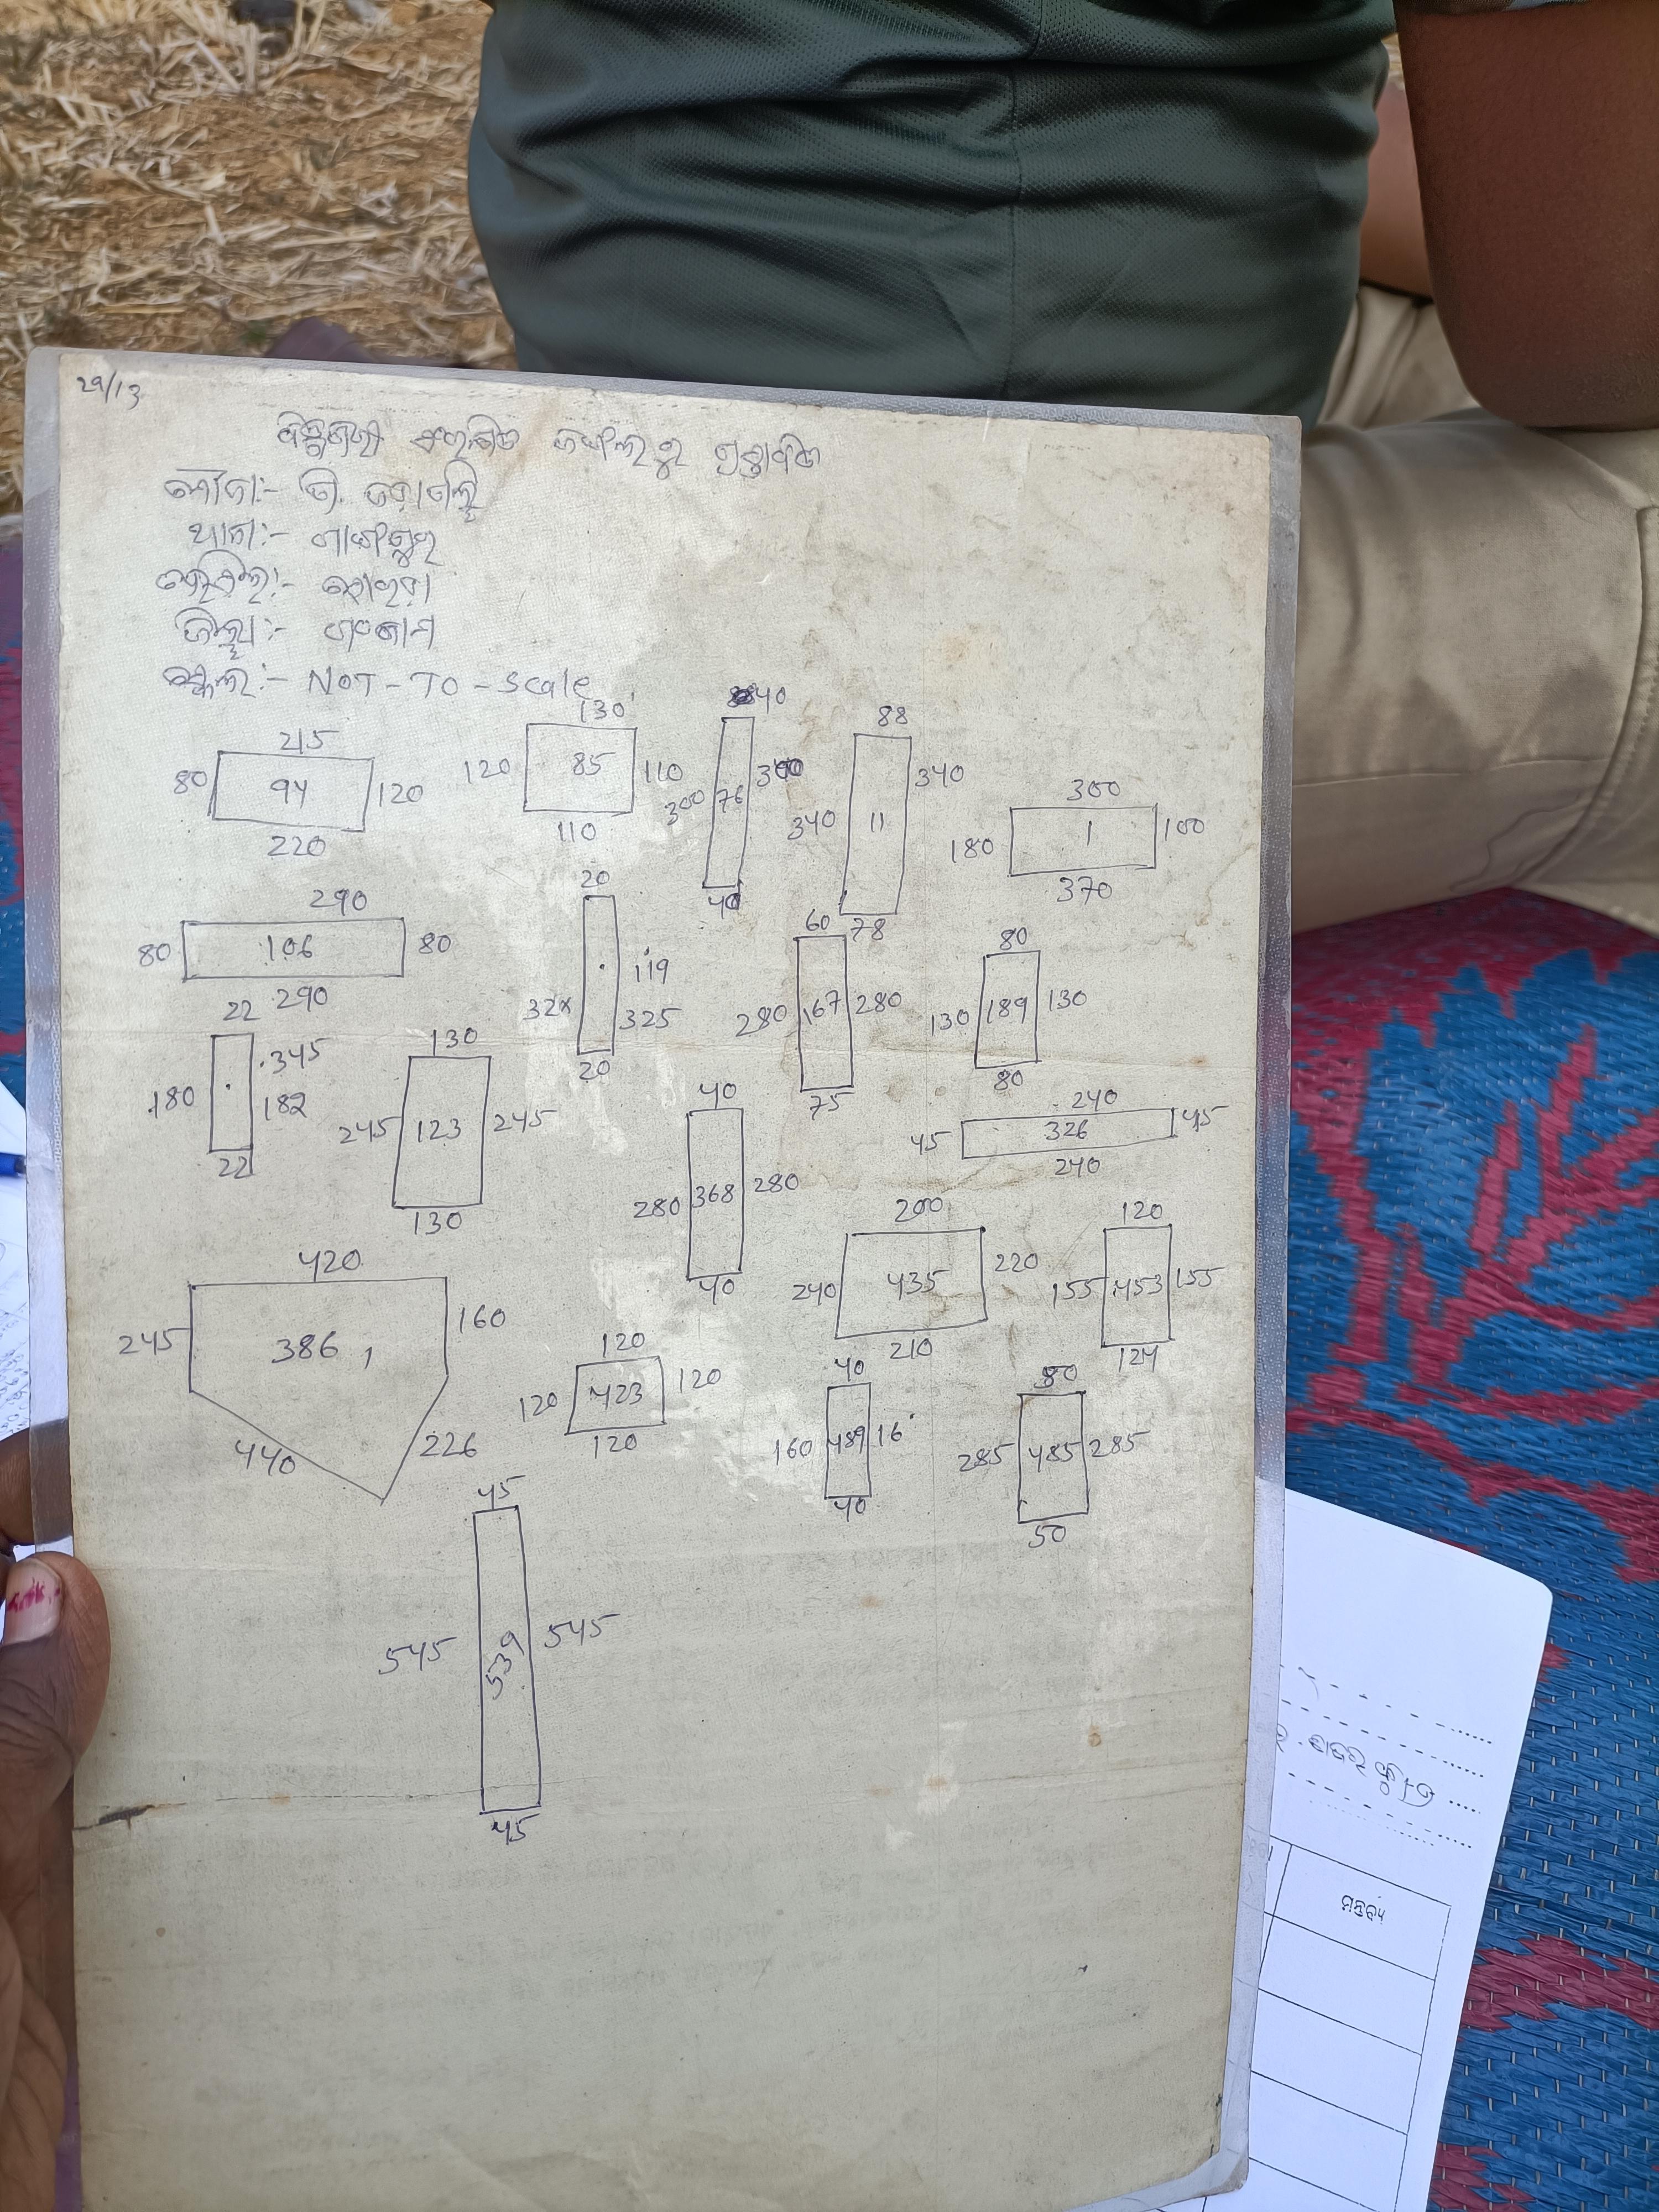 29/13
ଦିଗୁଣାପଡ଼ା ସଂରକ୍ଷିତ ଜଙ୍ଗଲରୁ ପ୍ରସ୍ତାବିତ
ମୌଜା:-
ଥାନା:-
ତହସିଲ:- ସୋରଡ଼ା
ଜିଲ୍ଲା:- ଗଂଜାମ
ସ୍କେଲ:- NOT-TO-Scale
215
80 94 120
220
130
120 85 110
110
40
300 76 300
40
88
340 11 340
78
300
180 1 100
370
290
80 106 80
290
20
119
325
20
60
280 167 280
75
80
130 189 130
80
22
345
180 182
22
130
245 123 245
130
40
280 368 280
40
240
45 326 45
240
200
240 435 220
210
120
155 453 155
124
420
245 386 160
440 226
120
120 423 120
120
40
160 489 16
40
285 485 285
50
45
545 539 545
45
ମନ୍ତବ୍ୟ